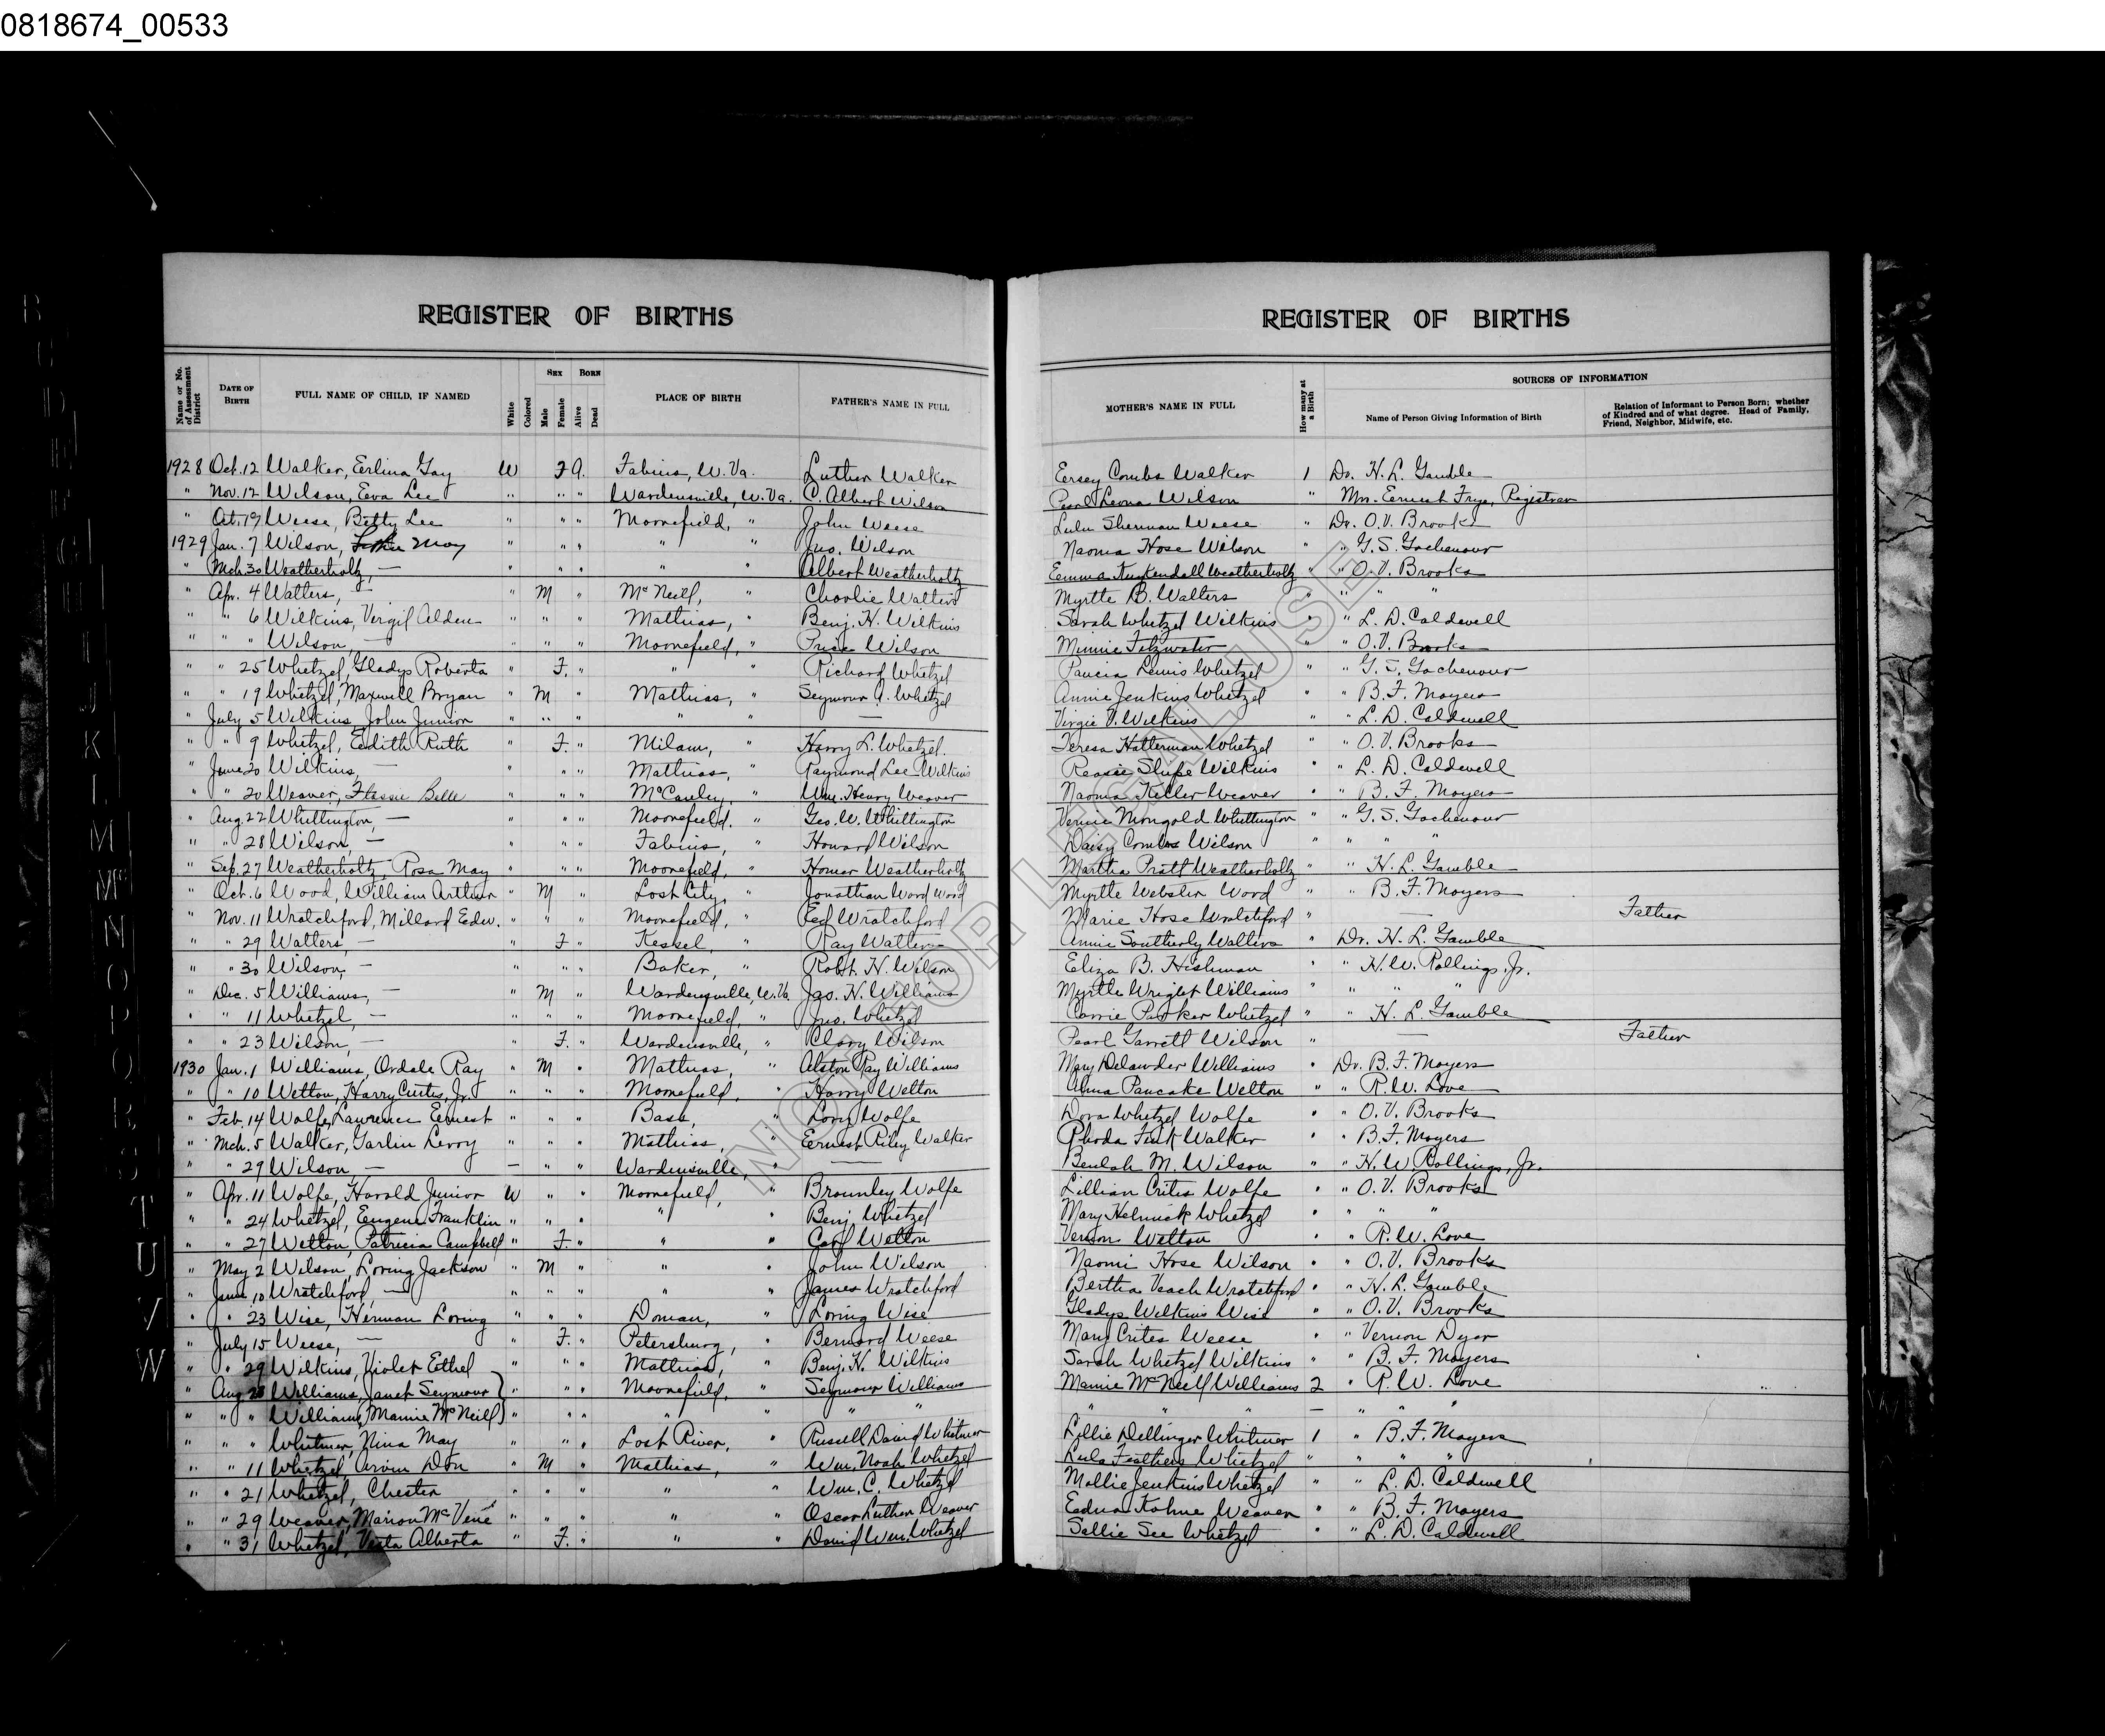 0818674_00533
REGISTER OF BIRTHS
Name or No. of Assessment District | DATE OF BIRTH | FULL NAME OF CHILD, IF NAMED | White | Colored | SEX Male Female | BORN Alive Dead | PLACE OF BIRTH | FATHER'S NAME IN FULL
1928 Oct. 12 Walker, Eerlina Gay W F A. Fabius, W. Va. Luther Walker
" Nov. 12 Wilson, Eeva Lee " " " Wardensville, W. Va. C. Albert Wilson
" Oct. 19 Weese, Betty Lee " " " Moorefield, " John Weese
1929 Jan. 7 Wilson, May " " " " " Jno. Wilson
" Mch. 30 Weatherholtz, — " " " " " Albert Weatherholtz
" Apr. 4 Walters, — " M " McNeill, " Charlie Walters
" " 6 Wilkins, Virgil Alden " " " Mathias, " Benj. H. Wilkins
" " " Wilson — " " " Moorefield, " Price Wilson
" " 25 Whetzel, Gladys Roberta " F. " " " Richard Whetzel
" " 19 Whetzel, Maxwell Bryan " M " Mathias, " Seymour A. Whetzel
" July 5 Wilkins, John Junior " " " " " —
" " 9 Whetzel, Eedith Ruth " F. " Milam, " Harry L. Whetzel.
" June 20 Wilkins, — " " " Mathias, " Raymond Lee Wilkins
" " 20 Weaver, Flossie Belle " " " McCauley, " Wm. Henry Weaver
" Aug. 22 Whittington, — " " " Moorefield. " Geo. W. Whittington
" " 28 Wilson, — " " " Fabius, " Howard Wilson
" Sep. 27 Weatherholtz, Rosa May " " " Moorefield, " Homer Weatherholtz
" Oct. 6 Wood, William Arthur " M " Lost City, " Jonathan Ward Wood
" Nov. 11 Wratchford, Millard Edw. " " " Moorefield, " Ed Wratchford
" " 29 Walters, — " F " Kessel, " Ray Walters
" " 30 Wilson, — " " " Baker, " Robt. H. Wilson
" Dec. 5 Williams, — " M " Wardensville, W. Va. Jas. H. Williams
" " 11 Whetzel, — " " " Moorefield, " Jno. Whetzel
" " 23 Wilson, — " F. " Wardensville, " Clary Wilson
1930 Jan. 1 Williams, Ordale Ray " M " Mathias, " Alston Ray Williams
" " 10 Welton, Harry Curtis, Jr. " " " Moorefield, " Harry Welton
" Feb. 14 Wolfe, Lawrence Eernest " " " Bass, " Lory Wolfe
" Mch. 5 Walker, Garlin Leroy " " " Mathias, " Eernest Riley Walker
" " 29 Wilson, — — " " Wardensville, " —
" Apr. 11 Wolfe, Harold Junior W " " Moorefield, " Brownley Wolfe
" " 24 Whetzel, Eugene Franklin " " " " " Benj. Whetzel
" " 27 Welton, Patricia Campbell " F. " " " Carl Welton
" May 2 Wilson, Loring Jackson " M " " " John Wilson
" June 10 Wratchford, — " " " " " James Wratchford
" " 23 Wise, Herman Loring " " " Dorman, " Loring Wise
" July 15 Weese, — " F. " Petersburg, " Bernard Weese
" " 29 Wilkins, Violet Eethel " " " Mathias, " Benj. H. Wilkins
" Aug. 23 Williams, Janet Seymour } " " " Moorefield, " Seymour Williams
" " " Williams, Mamie McNeill } " " " " " " "
" " " Whitmer, Nina May " " " Lost River, " Russell David Whitmer
" " 11 Whetzel, Arvin Don " M " Mathias, " Wm. Noah Whetzel
" " 21 Whetzel, Chester " " " " " Wm. C. Whetzel
" " 29 Weaver, Marion McVene " " " " " Oscar Luther Weaver
" " 31 Whetzel, Vesta Alberta " F. " " " David Wm. Whetzel
REGISTER OF BIRTHS
MOTHER'S NAME IN FULL | How many at a Birth | SOURCES OF INFORMATION
Name of Person Giving Information of Birth | Relation of Informant to Person Born; whether of Kindred and of what degree. Head of Family, Friend, Neighbor, Midwife, etc.
Eersey Combs Walker 1 Dr. H. L. Gamble
Pearl Leona Wilson " Mrs. Eernest Frye, Registrar
Lulu Sherman Weese " Dr. O. V. Brooks
Naoma Hose Wilson " " G. S. Gochenour
Eemma Kuykendall Weatherholtz " " O. V. Brooks
Myrtle B. Walters " " " "
Sarah Whetzel Wilkins " " L. D. Caldwell
Minnie Fitzwater " " O. V. Brooks
Lewis Whetzel " " G. S. Gochenour
Annie Jenkins Whetzel " " B. F. Moyers
Virgie V. Wilkins " " L. D. Caldwell
Teresa Halterman Whetzel " " O. V. Brooks
Slupe Wilkins " " L. D. Caldwell
Naoma Keller Weaver " " B. F. Moyers
Vernie Mongold Whittington " " G. S. Gochenour
Daisy Combs Wilson " " " "
Martha Pratt Weatherholtz " " H. L. Gamble
Myrtle Webster Wood " " B. F. Moyers
Marie Hose Wratchford " — Father
Annie Southerly Walters " Dr. H. L. Gamble
Eliza B. Hishman " " H. W. Rollings, Jr.
Myrtle Wright Williams " " " "
Carrie Parker Whetzel " " H. L. Gamble
Pearl Garrett Wilson " — Father
Mary Delawder Williams " Dr. B. F. Moyers
Anna Pancake Welton " " R. W. Love
Dora Whetzel Wolfe " " O. V. Brooks
Rhoda Funk Walker " " B. F. Moyers
Beulah M. Wilson " " H. W. Rollings, Jr.
Lillian Crites Wolfe " " O. V. Brooks
Mary Helmick Whetzel " " " "
Vernon Welton " " R. W. Love
Naomi Hose Wilson " " O. V. Brooks
Bertha Veach Wratchford " " H. L. Gamble
Gladys Wilkins Wise " " O. V. Brooks
Mary Crites Weese " " Vernon Dyer
Sarah Whetzel Wilkins " " B. F. Moyers
Mamie McNeill Williams 2 " R. W. Love
" " " — " " "
Lillie Dellinger Whitmer 1 " B. F. Moyers
Lula Feathers Whetzel " " " "
Mollie Jenkins Whetzel " " L. D. Caldwell
Eedna Kohne Weaver " " B. F. Moyers
Sallie See Whetzel " " L. D. Caldwell
T
U
V
W
NOT FOR LEGAL USE